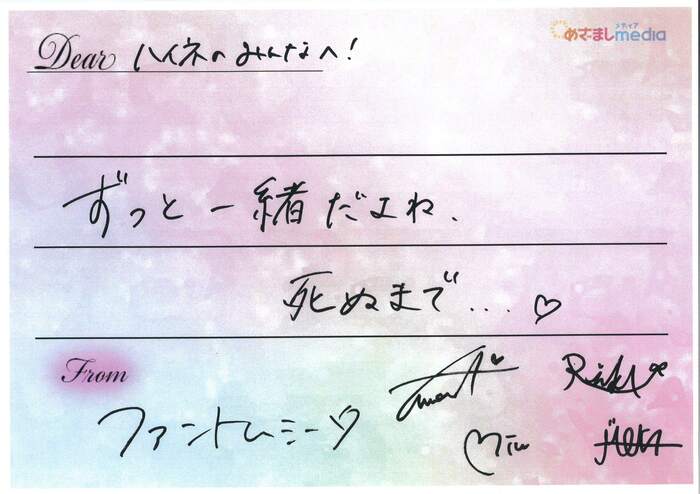 めざましmedia
メディア
Dear ハイネのみんなへ!
ずっと一緒だよね、
死ぬまで...♡
From
ファントムシータ
Miu